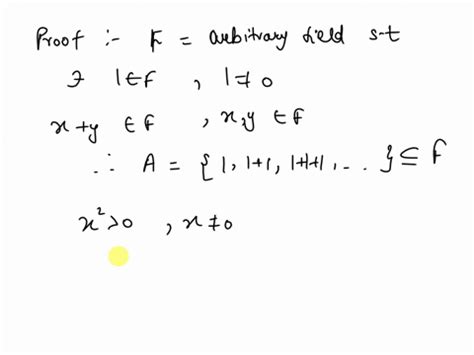 Proof :- F = arbitrary field s-t
∃ 1∈F , 1≠0
x+y ∈ F , x,y ∈ F
∴ A = {1, 1+1, 1+1+1, ... } ⊆ F
x²>0 , x≠0